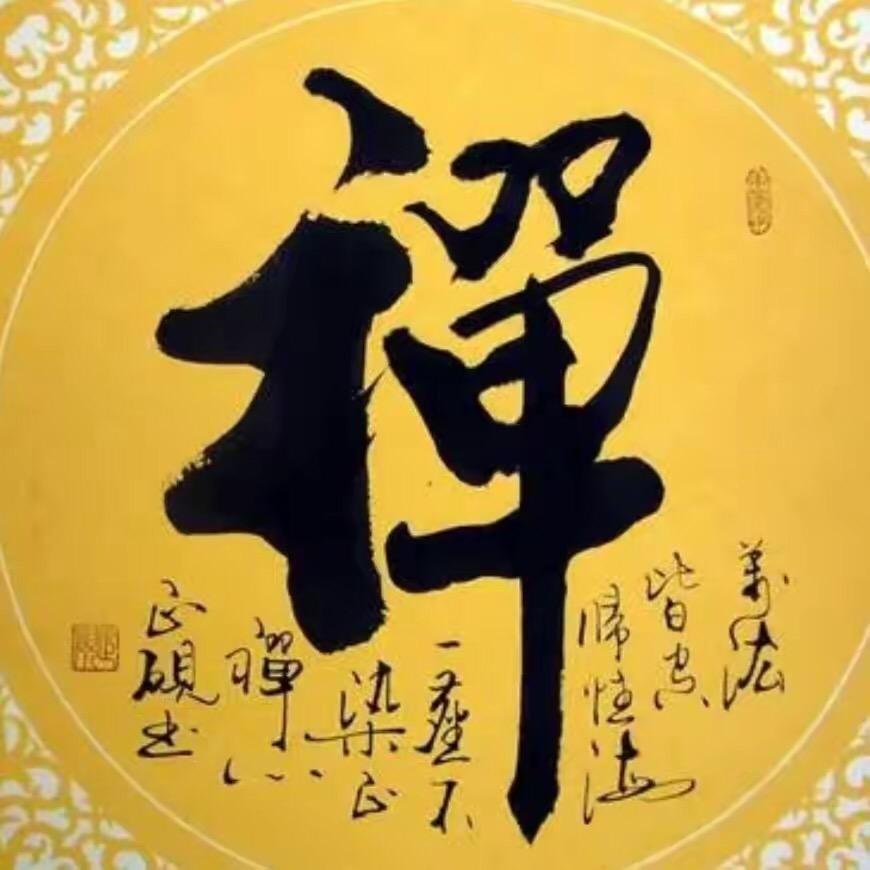 禪
萬法
皆空
歸性海
一塵不
染正
禪心
正
书